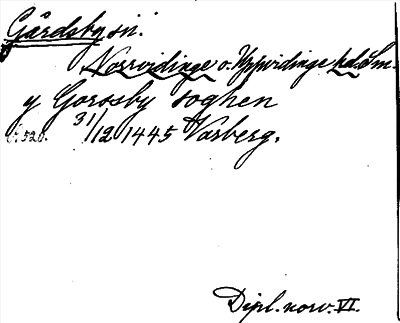 Gårdsby sn.
Norrvidinge o. Uppvidinge hd. Sm.
y Gorssby soghen
s. 520. 31/12 1445 Varberg.
Dipl. norv. VI.